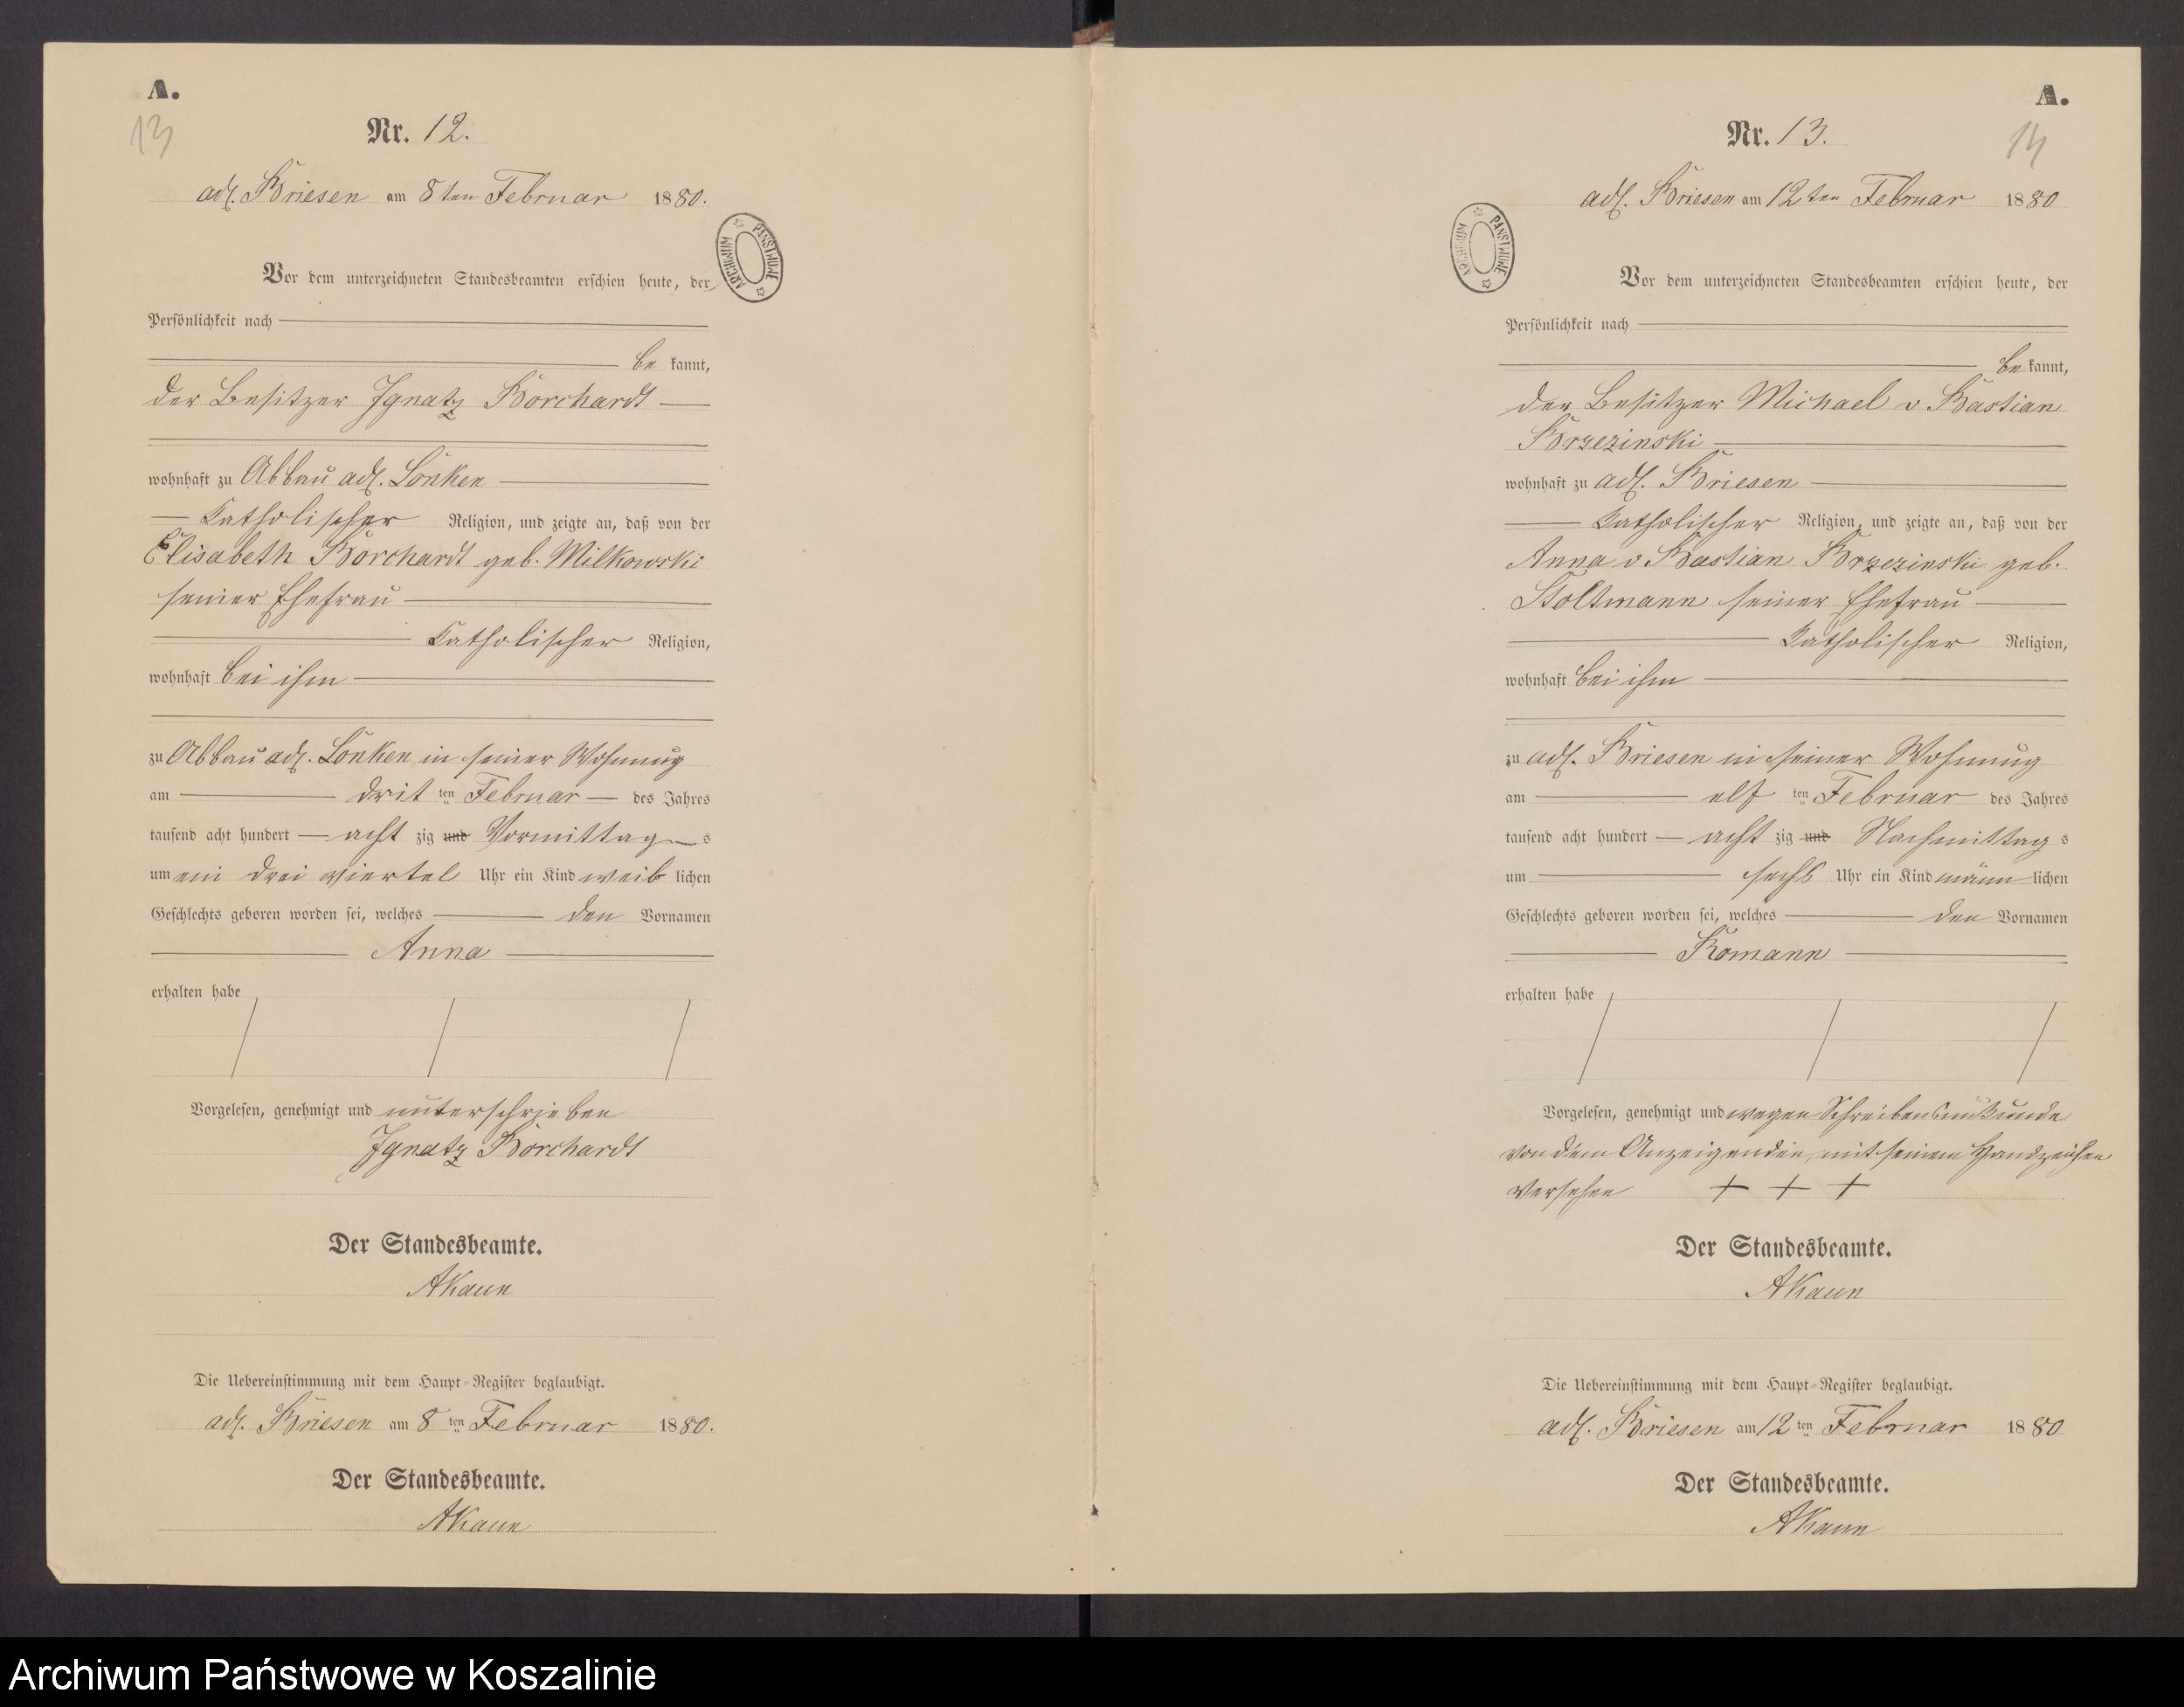 A.
13
Nr. 12.
adl. Briesen am 8ten Februar 1880.
ARCHIWUM PAŃSTWOWE
Vor dem unterzeichneten Standesbeamten erschien heute, der
Persönlichkeit nach
be kannt,
der Besitzer Ignatz Borchardt
wohnhaft zu Abbau adl. Lonken
Catholischer Religion, und zeigte an, daß von der
Elisabeth Borchardt geb. Milkowski
seiner Ehefrau
Catholischer Religion,
wohnhaft bei ihm
zu Abbau adl. Lonken in seiner Wohnung
am drit ten Februar des Jahres
tausend acht hundert acht zig und Vormittag s
um ein drei viertel Uhr ein Kind weib lichen
Geschlechts geboren worden sei, welches den Vornamen
Anna
erhalten habe
Vorgelesen, genehmigt und unterschrieben
Ignatz Borchardt
Der Standesbeamte.
AKaun
Die Uebereinstimmung mit dem Haupt-Register beglaubigt.
adl. Briesen am 8 ten Februar 1880.
Der Standesbeamte.
AKaun
A.
14
Nr. 13.
adl. Briesen am 12ten Februar 1880
ARCHIWUM PAŃSTWOWE
Vor dem unterzeichneten Standesbeamten erschien heute, der
Persönlichkeit nach
be kannt,
der Besitzer Michael v Bastian
Brzezinski
wohnhaft zu adl. Briesen
Catholischer Religion, und zeigte an, daß von der
Anna v Bastian Brzezinski geb.
Stoltmann seiner Ehefrau
Catholischer Religion,
wohnhaft bei ihm
zu adl. Briesen in seiner Wohnung
am elf ten Februar des Jahres
tausend acht hundert acht zig und Nachmittag s
um sechs Uhr ein Kind männ lichen
Geschlechts geboren worden sei, welches den Vornamen
Romann
erhalten habe
Vorgelesen, genehmigt und wegen Schreibensunkunde
von dem Anzeigenden mit seinem Handzeichen
versehen + + +
Der Standesbeamte.
AKaun
Die Uebereinstimmung mit dem Haupt-Register beglaubigt.
adl. Briesen am 12 ten Februar 1880
Der Standesbeamte.
AKaun
Archiwum Państwowe w Koszalinie